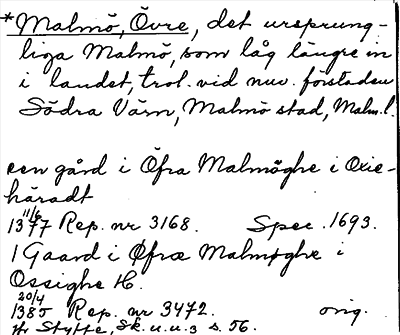 *Malmö, Övre, det ursprung-
liga Malmö, som låg längre in
i landet, trol. vid nuv. förstaden
Södra Värn, Malmö stad, Malm. l.
een gård i Öfra Malmöghe i Oxie-
häradt
13 11/6 77 Rep. nr 3168. Spec. 1693.
1 Gaard i Øfræ Malmøghe i
Ossighe H.
13 20/4 85 Rep. nr 3472. orig.
Styffe, Sk. u. u. 3 s. 56.